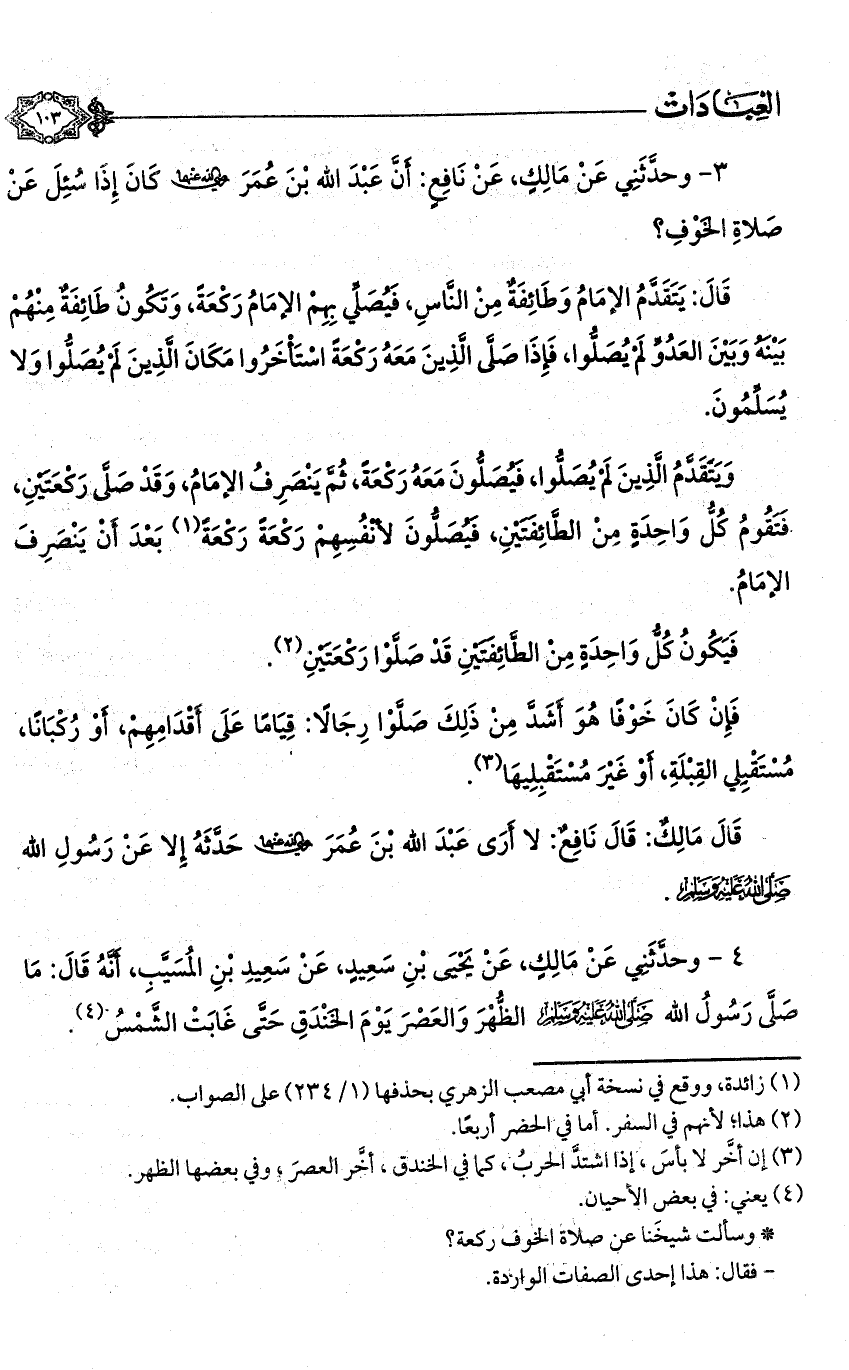 العِبَادَات
١٠٣
٣- وحدَّثَنِي عَنْ مَالِكٍ، عَنْ نَافِعٍ: أَنَّ عَبْدَ الله بْنَ عُمَرَ رضي الله عنهما كَانَ إِذَا سُئِلَ عَنْ
صَلاةِ الخَوْفِ؟
قَالَ: يَتَقَدَّمُ الإمَامُ وَطَائِفَةٌ مِنْ النَّاسِ، فَيُصَلِّي بِهِمْ الإمَامُ رَكْعَةً، وَتَكُونُ طَائِفَةٌ مِنْهُمْ
بَيْنَهُ وَبَيْنَ العَدُوِّ لَمْ يُصَلُّوا، فَإِذَا صَلَّى الَّذِينَ مَعَهُ رَكْعَةً اسْتَأْخَرُوا مَكَانَ الَّذِينَ لَمْ يُصَلُّوا وَلا
يُسَلِّمُونَ.
وَيَتَقَدَّمُ الَّذِينَ لَمْ يُصَلُّوا، فَيُصَلُّونَ مَعَهُ رَكْعَةً، ثُمَّ يَنْصَرِفُ الإمَامُ، وَقَدْ صَلَّى رَكْعَتَيْنِ،
فَتَقُومُ كُلُّ وَاحِدَةٍ مِنْ الطَّائِفَتَيْنِ، فَيُصَلُّونَ لأنْفُسِهِمْ رَكْعَةً رَكْعَةً(١) بَعْدَ أَنْ يَنْصَرِفَ
الإمَامُ.
فَيَكُونُ كُلُّ وَاحِدَةٍ مِنْ الطَّائِفَتَيْنِ قَدْ صَلَّوْا رَكْعَتَيْنِ(٢).
فَإِنْ كَانَ خَوْفًا هُوَ أَشَدَّ مِنْ ذَلِكَ صَلَّوْا رِجَالًا: قِيَامًا عَلَى أَقْدَامِهِمْ، أَوْ رُكْبَانًا،
مُسْتَقْبِلِي القِبْلَةِ، أَوْ غَيْرَ مُسْتَقْبِلِيهَا(٣).
قَالَ مَالِكٌ: قَالَ نَافِعٌ: لا أَرَى عَبْدَ الله بْنَ عُمَرَ رضي الله عنهما حَدَّثَهُ إلا عَنْ رَسُولِ الله
صَلَّى اللهُ عَلَيْهِ وَسَلَّمَ.
٤ - وحدَّثَنِي عَنْ مَالِكٍ، عَنْ يَحْيَى بْنِ سَعِيدٍ، عَنْ سَعِيدِ بْنِ المُسَيَّبِ، أَنَّهُ قَالَ: مَا
صَلَّى رَسُولُ الله صَلَّى اللهُ عَلَيْهِ وَسَلَّمَ الظُّهْرَ وَالعَصْرَ يَوْمَ الخَنْدَقِ حَتَّى غَابَتْ الشَّمْسُ(٤).
(١) زائدة، ووقع في نسخة أبي مصعب الزهري بحذفها (١/ ٢٣٤) على الصواب.
(٢) هذا؛ لأنهم في السفر. أما في الحضر أربعًا.
(٣) إن أخَّر لا بأسَ، إذا اشتدَّ الحربُ، كما في الخندق، أخَّر العصرَ؛ وفي بعضها الظهر.
(٤) يعني: في بعض الأحيان.
* وسألت شيخَنا عن صلاة الخوف ركعة؟
- فقال: هذا إحدى الصفات الواردة.